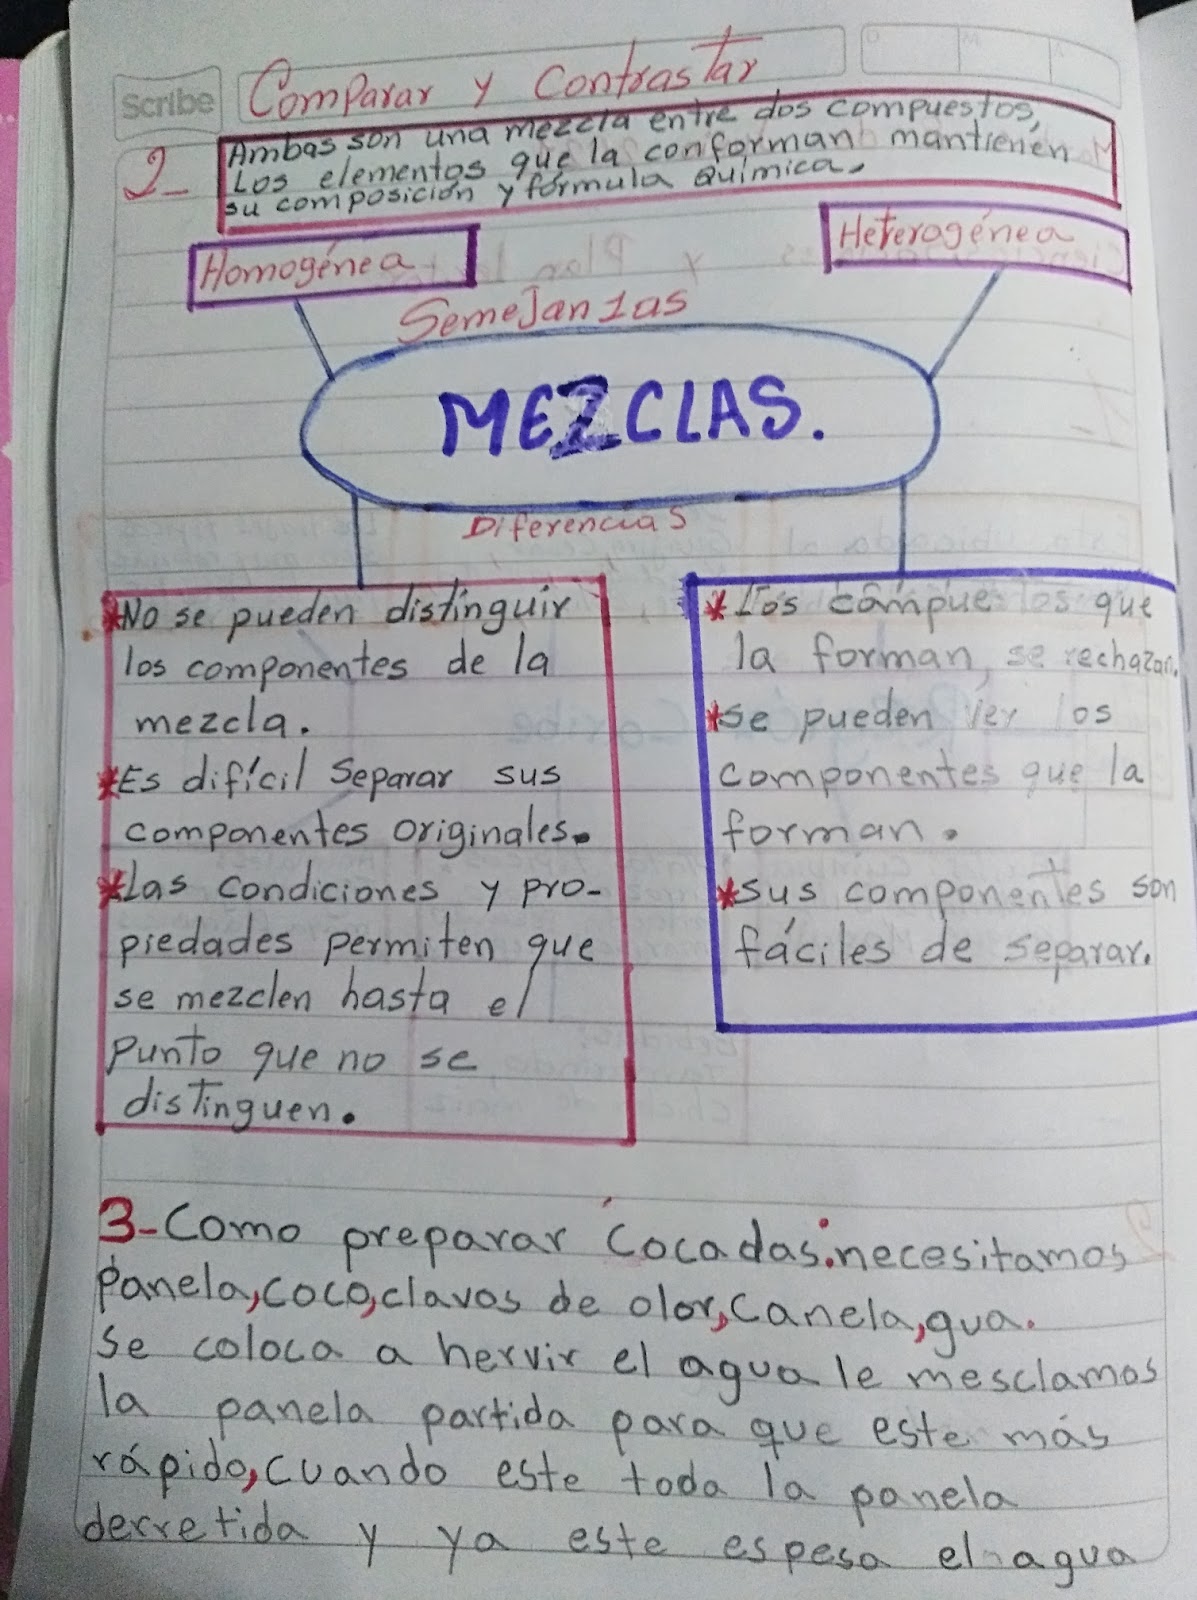 Scribe
Comparar y Contrastar
2-
Ambas son una mezcla entre dos compuestos,
Los elementos que la conforman mantienen
su composición y fórmula química.
Homogénea
Heterogénea
Semejanzas
MEZCLAS.
Diferencias
*No se pueden distinguir
los componentes de la
mezcla.
*Es difícil Separar sus
componentes originales.
*Las condiciones y pro-
piedades permiten que
se mezclen hasta el
punto que no se
distinguen.
*Los compuestos que
la forman, se rechazan.
*se pueden ver los
componentes que la
forman.
*sus componentes son
fáciles de separar.
3-Como preparar Cocadas.necesitamos
panela,coco,clavos de olor,canela,gua.
se coloca a hervir el agua le mesclamos
la panela partida para que este más
rápido,cuando este toda la panela
derretida y ya este espesa el agua